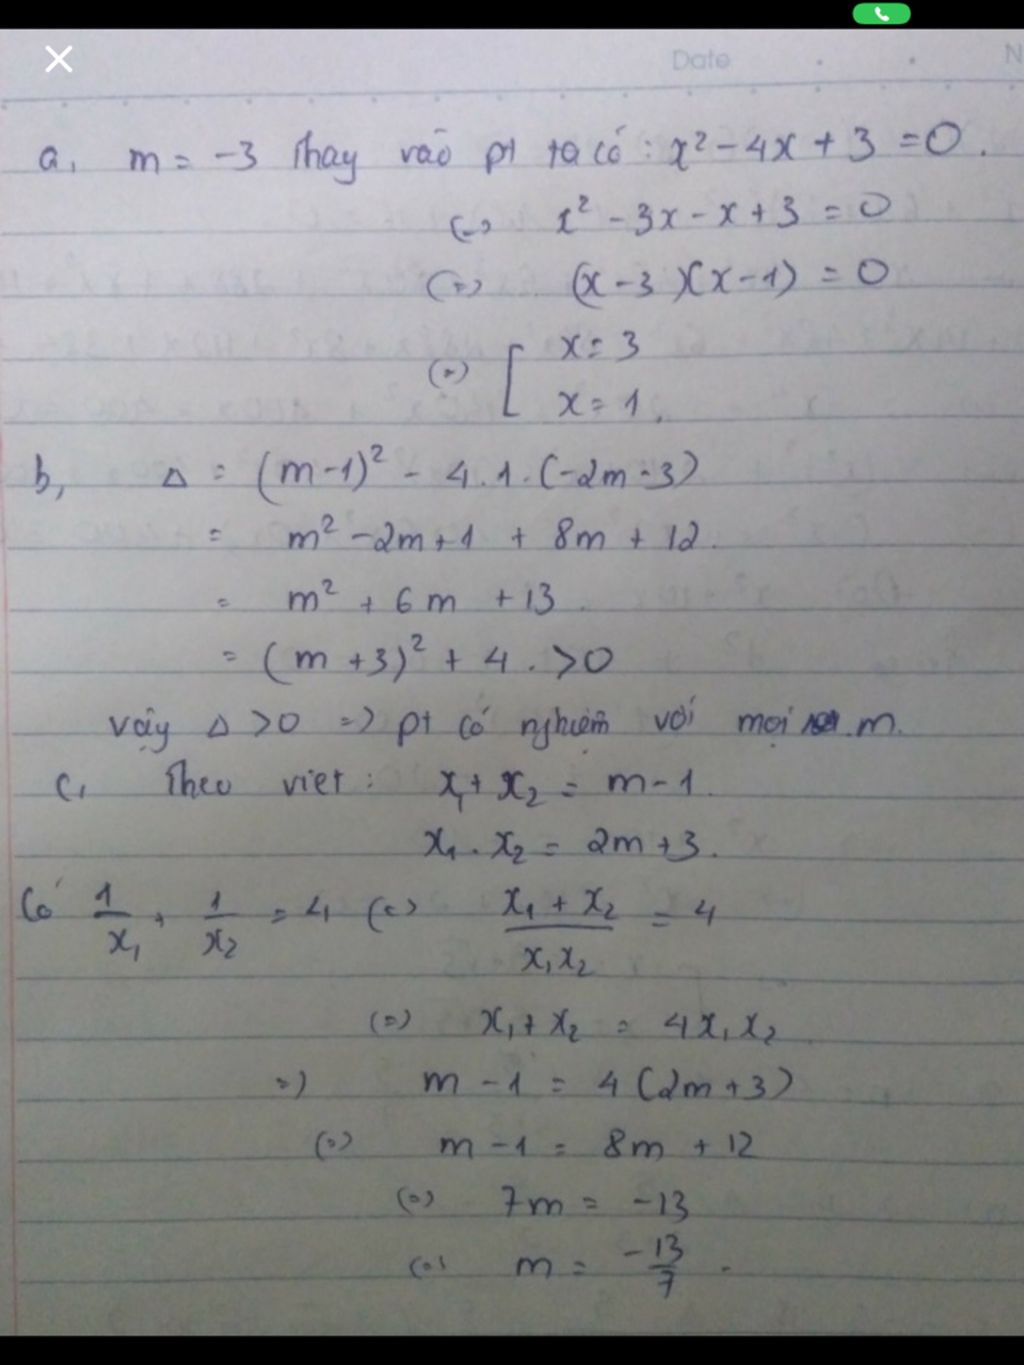 Date
N
a, m = -3 Thay vào pt ta có : x² - 4x + 3 = 0.
(=) x² - 3x - x + 3 = 0
(=) (x - 3)(x - 1) = 0
(=) [ x = 3
x = 1.
b, Δ = (m-1)² - 4.1.(-2m-3)
= m² - 2m + 1 + 8m + 12.
= m² + 6m + 13.
= (m + 3)² + 4. > 0
vậy Δ > 0 => pt có nghiệm với mọi m.
c, Theo viet : x₁ + x₂ = m - 1.
x₁ . x₂ = 2m + 3.
Có 1/x₁ + 1/x₂ = 4 (=) (x₁ + x₂)/(x₁x₂) = 4
(=) x₁ + x₂ = 4x₁x₂
=) m - 1 = 4(2m + 3)
(=) m - 1 = 8m + 12
(=) 7m = -13
(=) m = -13/7.